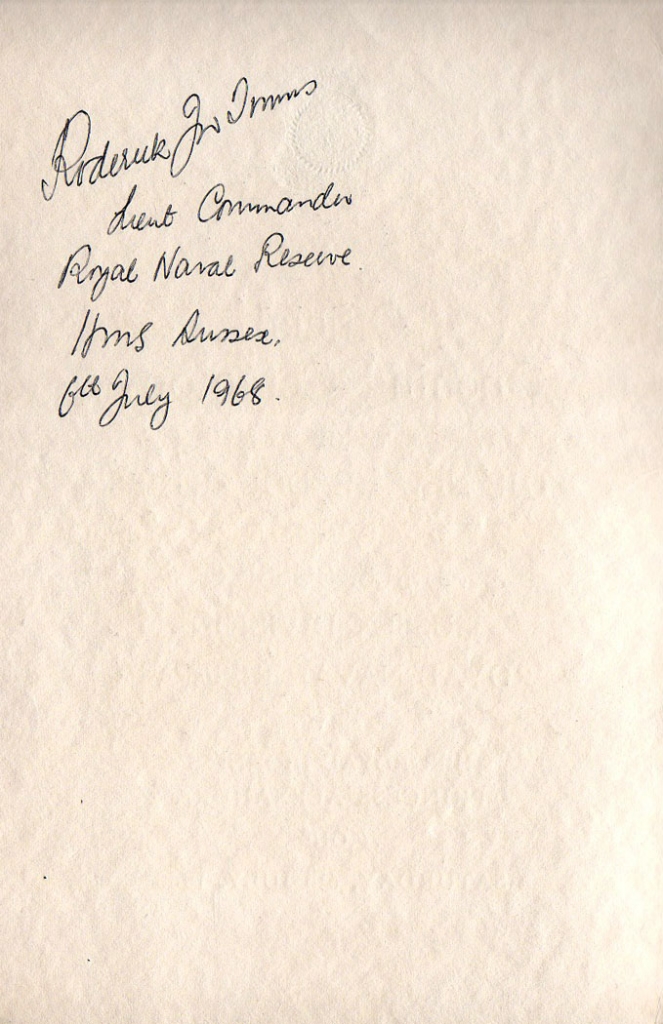 Roderick Timms
Lieut Commander
Royal Naval Reserve
Hms Sussex.
6th July 1968.